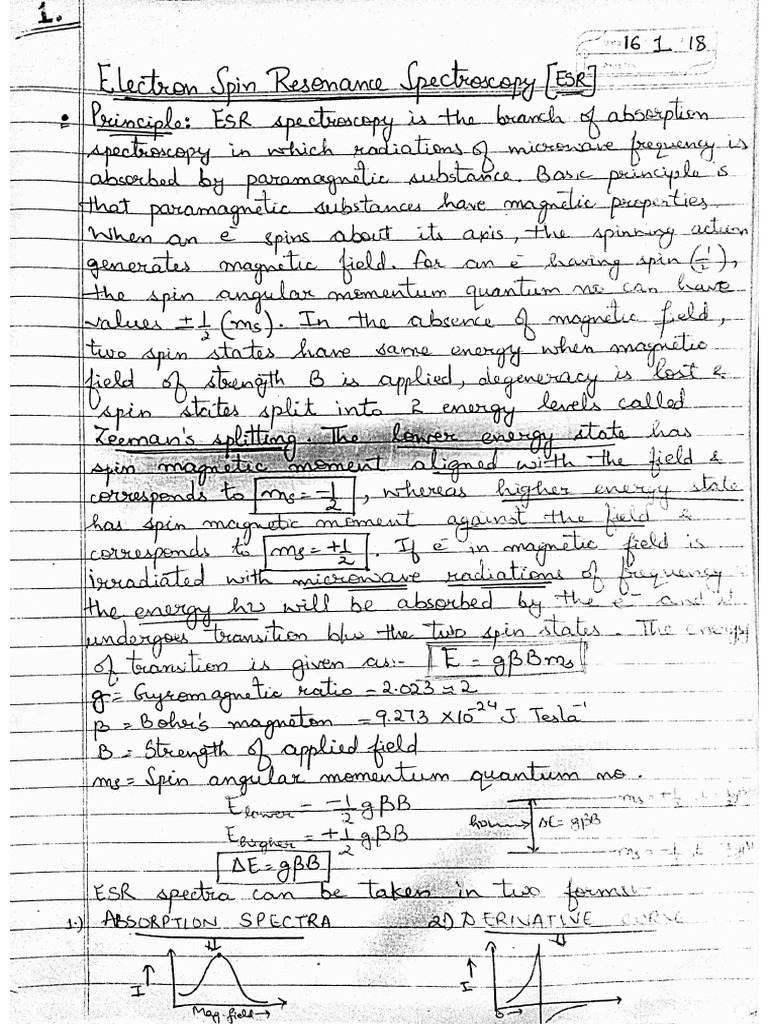 1.
16 1 18
Electron Spin Resonance Spectroscopy [ESR]
• Principle: ESR spectroscopy is the branch of absorption
spectroscopy in which radiations of microwave frequency is
absorbed by paramagnetic substance. Basic principle is
that paramagnetic substances have magnetic properties.
When an e⁻ spins about its axis, the spinning action
generates magnetic field. For an e⁻ having spin (1/2),
the spin angular momentum quantum no can have
values ±1/2 (ms). In the absence of magnetic field,
two spin states have same energy when magnetic
field of strength B is applied, degeneracy is lost &
spin states split into 2 energy levels called
Zeeman's splitting. The lower energy state has
spin magnetic moment aligned with the field &
corresponds to ms = -1/2, whereas higher energy state
has spin magnetic moment against the field &
corresponds to ms = +1/2. If e⁻ in magnetic field is
irradiated with microwave radiations of frequency
the energy hν will be absorbed by the e⁻ and it
undergoes transition b/w the two spin states. The energy
of transition is given as:- E = gβBms
g = Gyromagnetic ratio = 2.023 ≈ 2
β = Bohr's magneton = 9.273 ×10⁻²⁴ J. Tesla⁻¹
B = Strength of applied field
ms = Spin angular momentum quantum no.
E lower = -1/2 gβB
E higher = +1/2 gβB
hν → ΔE = gβB
ΔE = gβB
ESR spectra can be taken in two forms:-
1.) ABSORPTION SPECTRA 2.) DERIVATIVE CURVE
I ↑ I ↑
Mag. field → B →